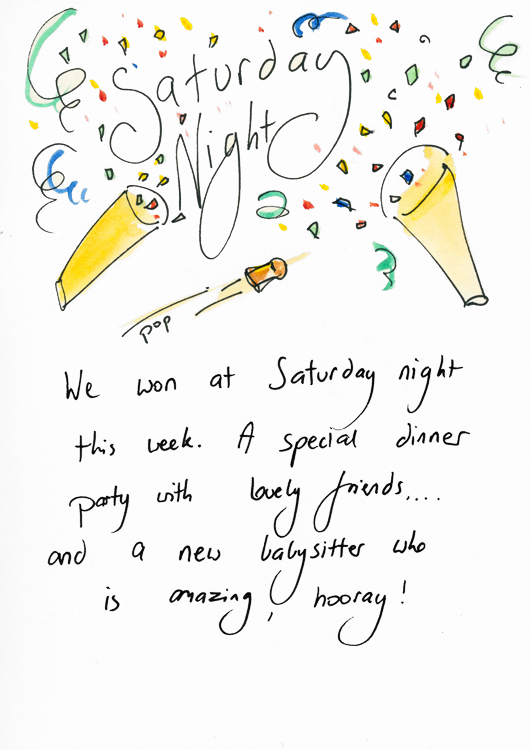 Saturday
Night
pop
We won at Saturday night
this week. A special dinner
party with lovely friends....
and a new babysitter who
is amazing, hooray!